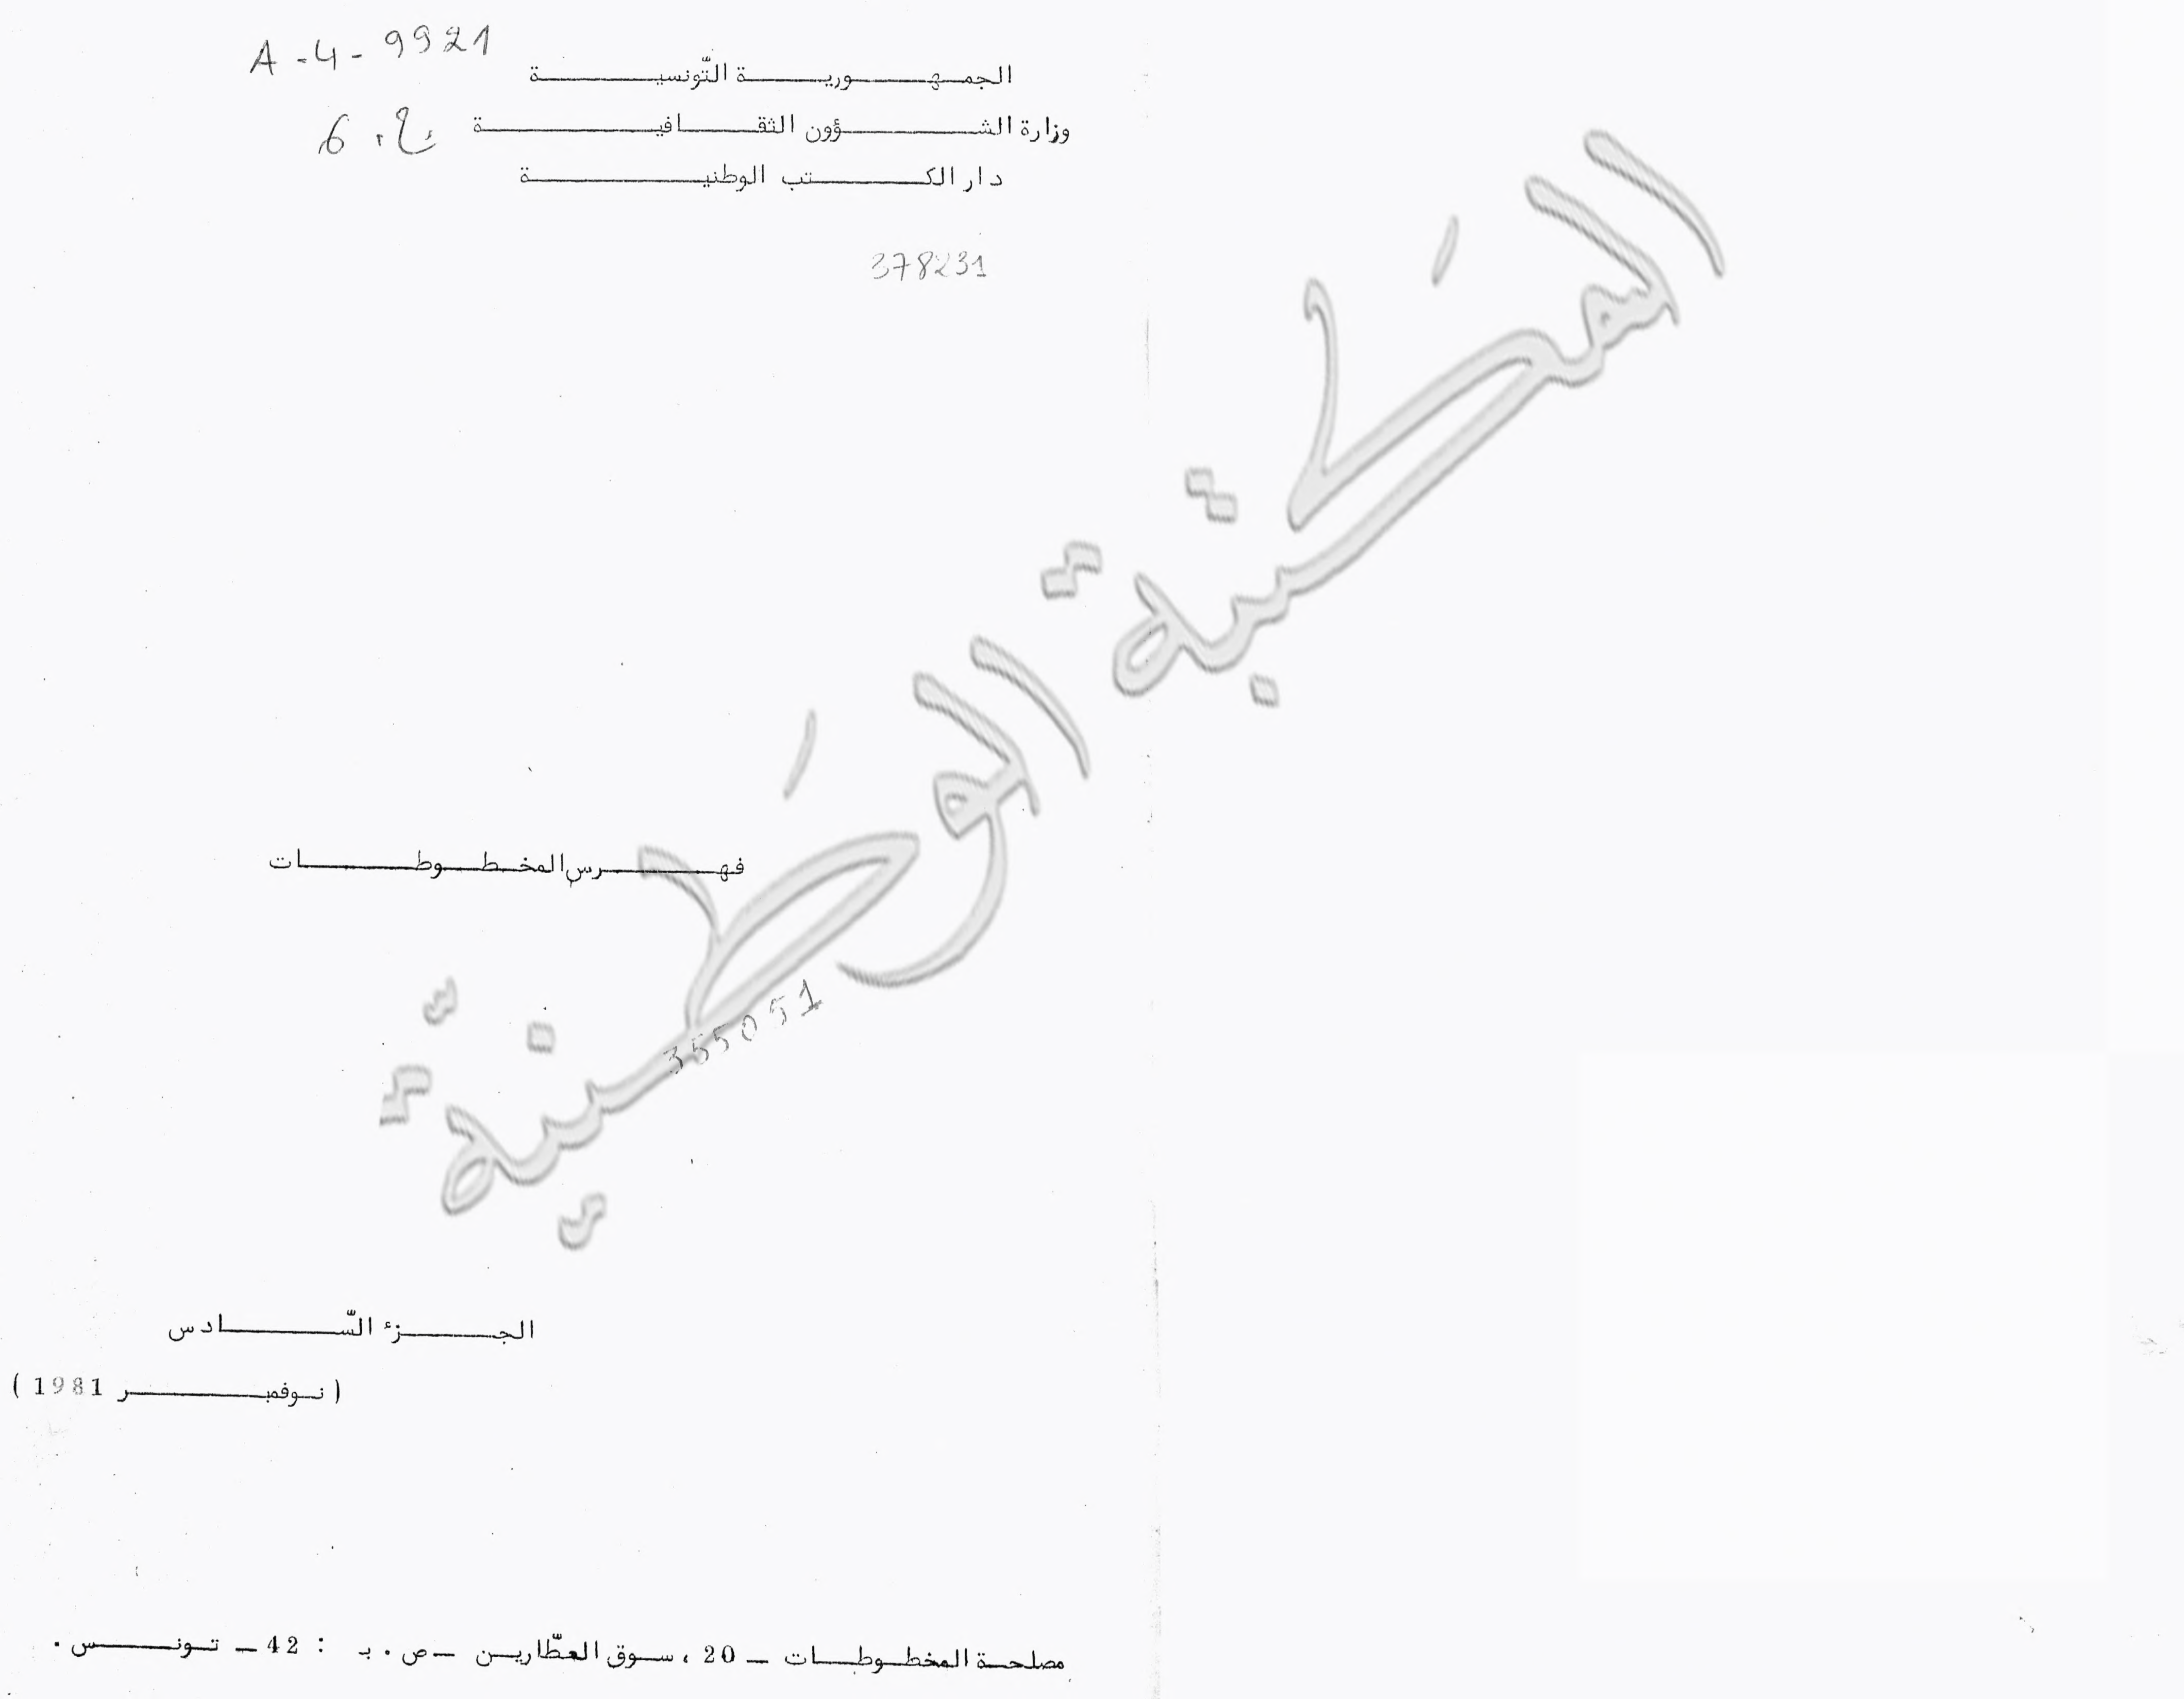 A - 4 - 9921
الجمهورية التّونسية
وزارة الشؤون الثقافية
ج . 6
دار الكتب الوطنية
378231
المكتبة الوطنيّة
فهرس المخطوطات
355051
الجزء السّادس
( نوفمبر 1981 )
مصلحة المخطوطات - 20 ، سوق العطّارين - ص . ب : 42 - تونس .